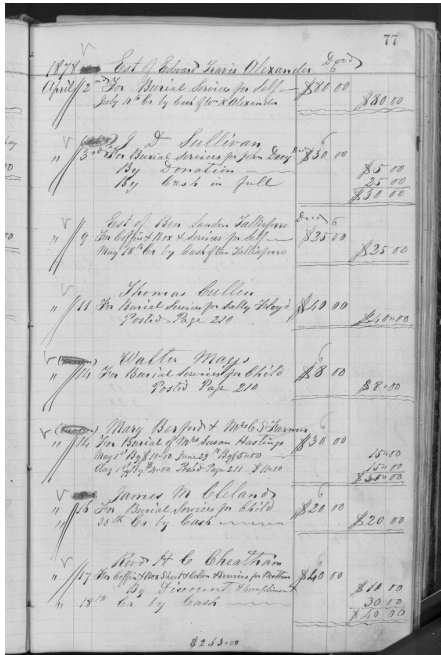 77
1878 Est of Edward Travis Alexander Dr
April 2nd For Burial Services for Self $80 00
July 10th Cr by Cash of Wm K Alexander $80 00
J D Sullivan
" 3rd For Burial Services for John $30 00
By Donation $5 00
By Cash in full 25 00
$30 00
Est of Ben Sanden Taliaferro
" 9 For Coffin & Box & Services for Self $25 00
May 18th Cr by Cash of Taliaferro $25 00
Thomas Cullen
" 11 For Burial Services for Sally Floyd $40 00
Posted Page 210 $40 00
Walter Mays
" 14 For Burial Services for Child $8 00
Posted Page 210 $8 00
Mary & Mrs C S
" 14 For Burial of Mrs Susan Hastings $30 00
May 1st By $10 00 June 29th By $5 00 15 00
Aug 1st Posted Page 211 15 00
$30 00
James M Cleland
" 16 For Burial Services for Child $20 00
30th Cr by Cash $20 00
Revd H C Cheatham
" 17 For Coffin & Box & Services for $40 00
By Discount & Compliment $10 00
" 18th Cr by Cash 30 00
$40 00
$263 00